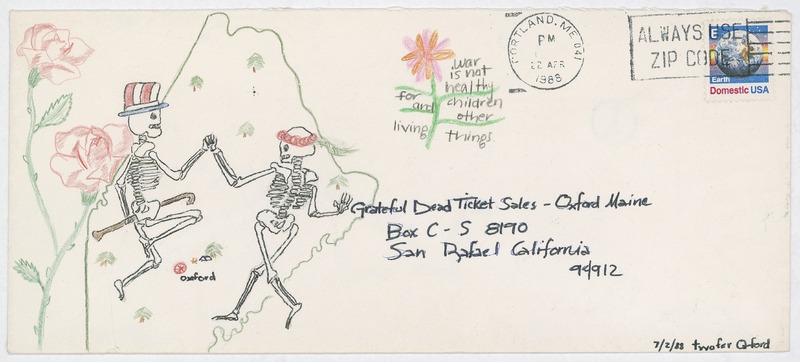 PORTLAND, ME 041
PM
22 APR
1988
ALWAYS USE
ZIP CODE
E
Earth
Domestic USA
war
is not
healthy
for children
and other
living things.
Grateful Dead Ticket Sales - Oxford Maine
Box C - S 8190
San Rafael California
94912
oxford
7/2/88 twofer Oxford